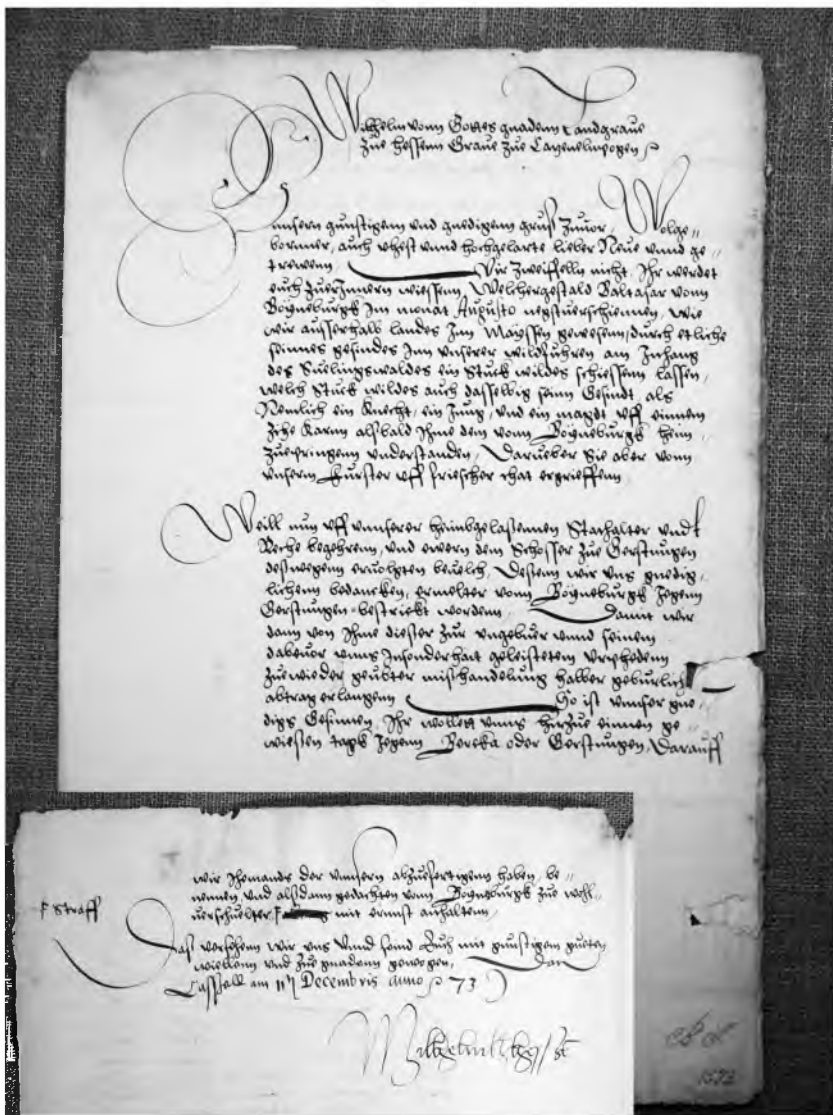 Wilhelm vonn Gottes gnadenn Landgraue
Zue Hessenn Graue Zue Catzenelnpogen
Unsern gunstigenn und gnedigenn gruß Zuuor, Wolge=
borrner, auch vhest vnnd hochgelarte lieber Neue vnnd ge=
trewenn Wir Zweiffelln nicht, Ihr werdet
euch ZuerInnern wissenn, Welchergestald Baltasar vonn
Boyneburgk Im monat Augusto negstuerschiennen, Wie
wir ausserhalb landes Inn Meyssen gewesenn, durch etliche
seines gesindes Inn vnserer wildfuhren am
des Suelingswaldes ein Stuck wildes schiessenn lassen,
welch Stuck wildes auch dasselbig sein Gesindt, als
Nemlich ein Knecht, ein Jung, vnd ein magdt vff einnem
Karnn alsbald Ihme dem vonn Boyneburgk heim
Zuepringenn vnderstanden, Darueber Sie aber vonn
vnserm Furster vff frischer that ergrieffenn
Weill nun vff vnnserer heimbgelassennen Stathalter vndt
Rethe begehrenn, vnd ewern dem Schosser Zue Gerstungen
destwegenn eruolgten beuelch, Dessenn wir vns gnedig=
lichenn bedancken, ermelter vonn Boyneburgk Iegenn
Gerstungen bestrickt wordenn, Damit wir
dann von Ihme dieser Zur vngebuer vnnd seinem
dabeuor vnns Insonderhait geleistetem Vrphedenn
Zuewieder geubter mishandelung halber geburlich
abtrag erlangenn So ist vnnser gne=
digs Gesinnen, Ihr wollett vnns hierzue einnen ge=
wiessen tagk Iegenn Bercka oder Gerstungen, Darauff
wir Jhemands der vnnsern abzuefertigenn haben, be=
nennen, vnd alsdann gedachten vonn Boyneburgk Zue wohl=
uerschuelter mit ernst anhaltenn,
Straff
Das versehenn wir vns Vnnd seind Euch mit gunstigem gueten
willenn vnd Zue gnadenn gewogen, Dat
Cassell am Decembris Anno 73
1573